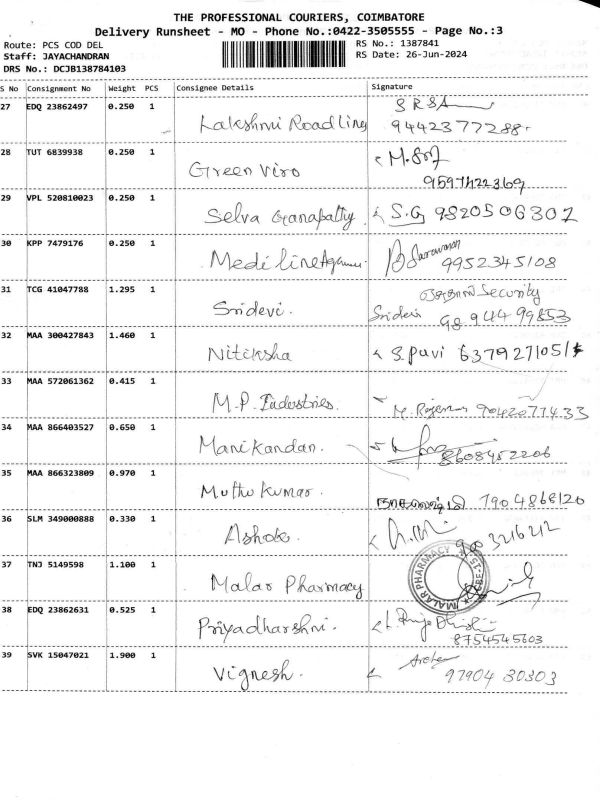 THE PROFESSIONAL COURIERS, COIMBATORE
Delivery Runsheet - MO - Phone No.:0422-3505555 - Page No.:3
Route: PCS COD DEL
RS No.: 1387841
Staff: JAYACHANDRAN
RS Date: 26-Jun-2024
DRS No.: DCJB138784103
S No Consignment No Weight PCS Consignee Details Signature
27 EDQ 23862497 0.250 1 Lakshmi Roadling SRSA
9442377288
28 TUT 6839938 0.250 1 Green Viro M.
9597422369
29 VPL 520810023 0.250 1 Selva Ganapathy S.G 9820506302
30 KPP 7479176 0.250 1 Mediline Saravanan
9952345108
31 TCG 41047788 1.295 1 Sridevi. Security
Sridevi 98 944 99853
32 MAA 300427843 1.460 1 Nitiksha S. Pavi 6379271051
33 MAA 572061362 0.415 1 M.P. Industries. M. 9042077433
34 MAA 866403527 0.650 1 Manikandan. 8608452206
35 MAA 866323809 0.970 1 Muthu Kumar. 7904868120
36 SLM 349000888 0.330 1 Ashok. 9003216212
37 TNJ 5149598 1.100 1 Malar Pharmacy MALAR PHARMACY
38 EDQ 23862631 0.525 1 Priyadharshni.
8754545603
39 SVK 15047021 1.900 1 Vignesh. 97904 30303